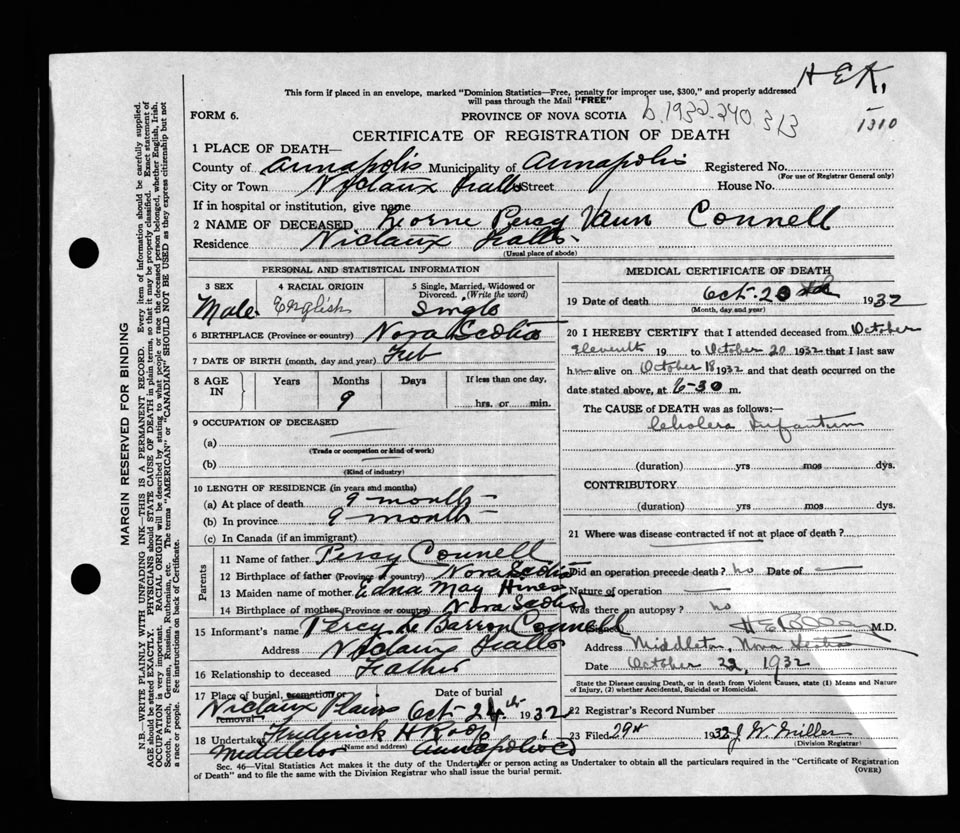 H E K,
This form if placed in an envelope, marked "Dominion Statistics—Free, penalty for improper use, $300," and properly addressed
will pass through the Mail "FREE"
FORM 6.
PROVINCE OF NOVA SCOTIA b.1932.240.313
1310
CERTIFICATE OF REGISTRATION OF DEATH
1 PLACE OF DEATH—
County of Annapolis Municipality of Annapolis Registered No.
(For use of Registrar General only)
City or Town Nictaux Falls Street House No.
If in hospital or institution, give name
2 NAME OF DECEASED Percy Vaun Connell
Residence Nictaux Falls
(Usual place of abode)
PERSONAL AND STATISTICAL INFORMATION
3 SEX 4 RACIAL ORIGIN 5 Single, Married, Widowed or
Divorced. (Write the word)
Male English Single
6 BIRTHPLACE (Province or country) Nova Scotia
7 DATE OF BIRTH (month, day and year) Feb
8 AGE IN Years Months Days If less than one day,
9 hrs. or min.
9 OCCUPATION OF DECEASED
(a)
(Trade or occupation or kind of work)
(b)
(Kind of industry)
10 LENGTH OF RESIDENCE (in years and months)
(a) At place of death 9 months
(b) In province 9 months
(c) In Canada (if an immigrant)
Parents
11 Name of father Percy Connell
12 Birthplace of father (Province or country) Nova Scotia
13 Maiden name of mother Edna May
14 Birthplace of mother (Province or country) Nova Scotia
15 Informant's name Percy Le Barron Connell
Address Nictaux Falls
16 Relationship to deceased Father
17 Place of burial, cremation or removal Date of burial
Nictaux Plains Oct 24th 1932
18 Undertaker Frederick H Roop
(Name and address)
Middleton Annapolis Co
MEDICAL CERTIFICATE OF DEATH
19 Date of death Oct. 20th 1932
(Month, day and year)
20 I HEREBY CERTIFY that I attended deceased from October
Eleventh 19 to October 20 1932 that I last saw
h alive on October 18 1932 and that death occurred on the
date stated above, at 6-30 m.
The CAUSE of DEATH was as follows:—
Cholera Infantum
(duration) yrs mos dys.
CONTRIBUTORY
(duration) yrs mos dys.
21 Where was disease contracted if not at place of death?
Did an operation precede death? no Date of —
Nature of operation —
Was there an autopsy? no
(Signed) M.D.
Address Middleton, Nova Scotia
Date October 22, 1932
State the Disease causing Death, or in death from Violent Causes, state (1) Means and Nature
of Injury, (2) whether Accidental, Suicidal or Homicidal.
22 Registrar's Record Number
23 Filed 29th 1932 J W Miller
(Division Registrar)
Sec. 46—Vital Statistics Act makes it the duty of the Undertaker or person acting as Undertaker to obtain all the particulars required in the "Certificate of Registration
of Death" and to file the same with the Division Registrar who shall issue the burial permit.
(OVER)
MARGIN RESERVED FOR BINDING
N.B.—WRITE PLAINLY WITH UNFADING INK—THIS IS A PERMANENT RECORD. Every item of information should be carefully supplied.
AGE should be stated EXACTLY. PHYSICIANS should STATE CAUSE OF DEATH in plain terms, so that it may be properly classified. Exact statement of
OCCUPATION is very important. RACIAL ORIGIN will be described by stating to what people or race the deceased person belonged, whether English, Irish,
Scotch, French, German, Russian, Ruthenian, etc. The terms "AMERICAN" or "CANADIAN" SHOULD NOT BE USED as they express citizenship but not
a race or people. See instructions on back of Certificate.